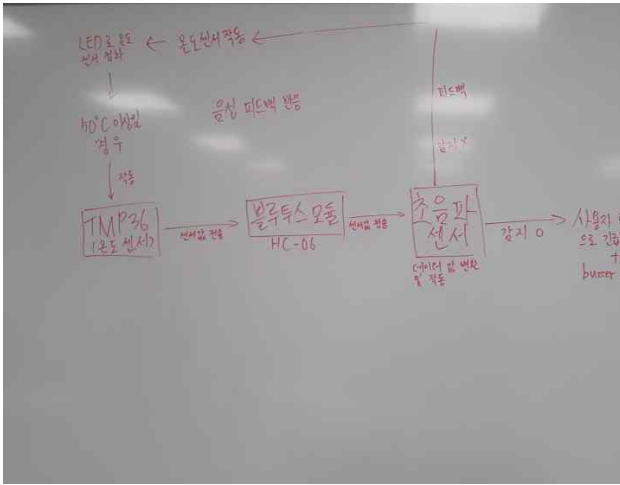 LED로 온도
센서 점화
온도센서 작동
피드백
음성 피드백 반응
50°C 이상일
경우
감지 X
작동
TMP36
(온도센서)
센서값 전송
블루투스 모듈
HC-06
센서값 전송
초음파
센서
데이터 값 변환
및 작동
감지 O
사용자
으로 긴급
+
buzzer